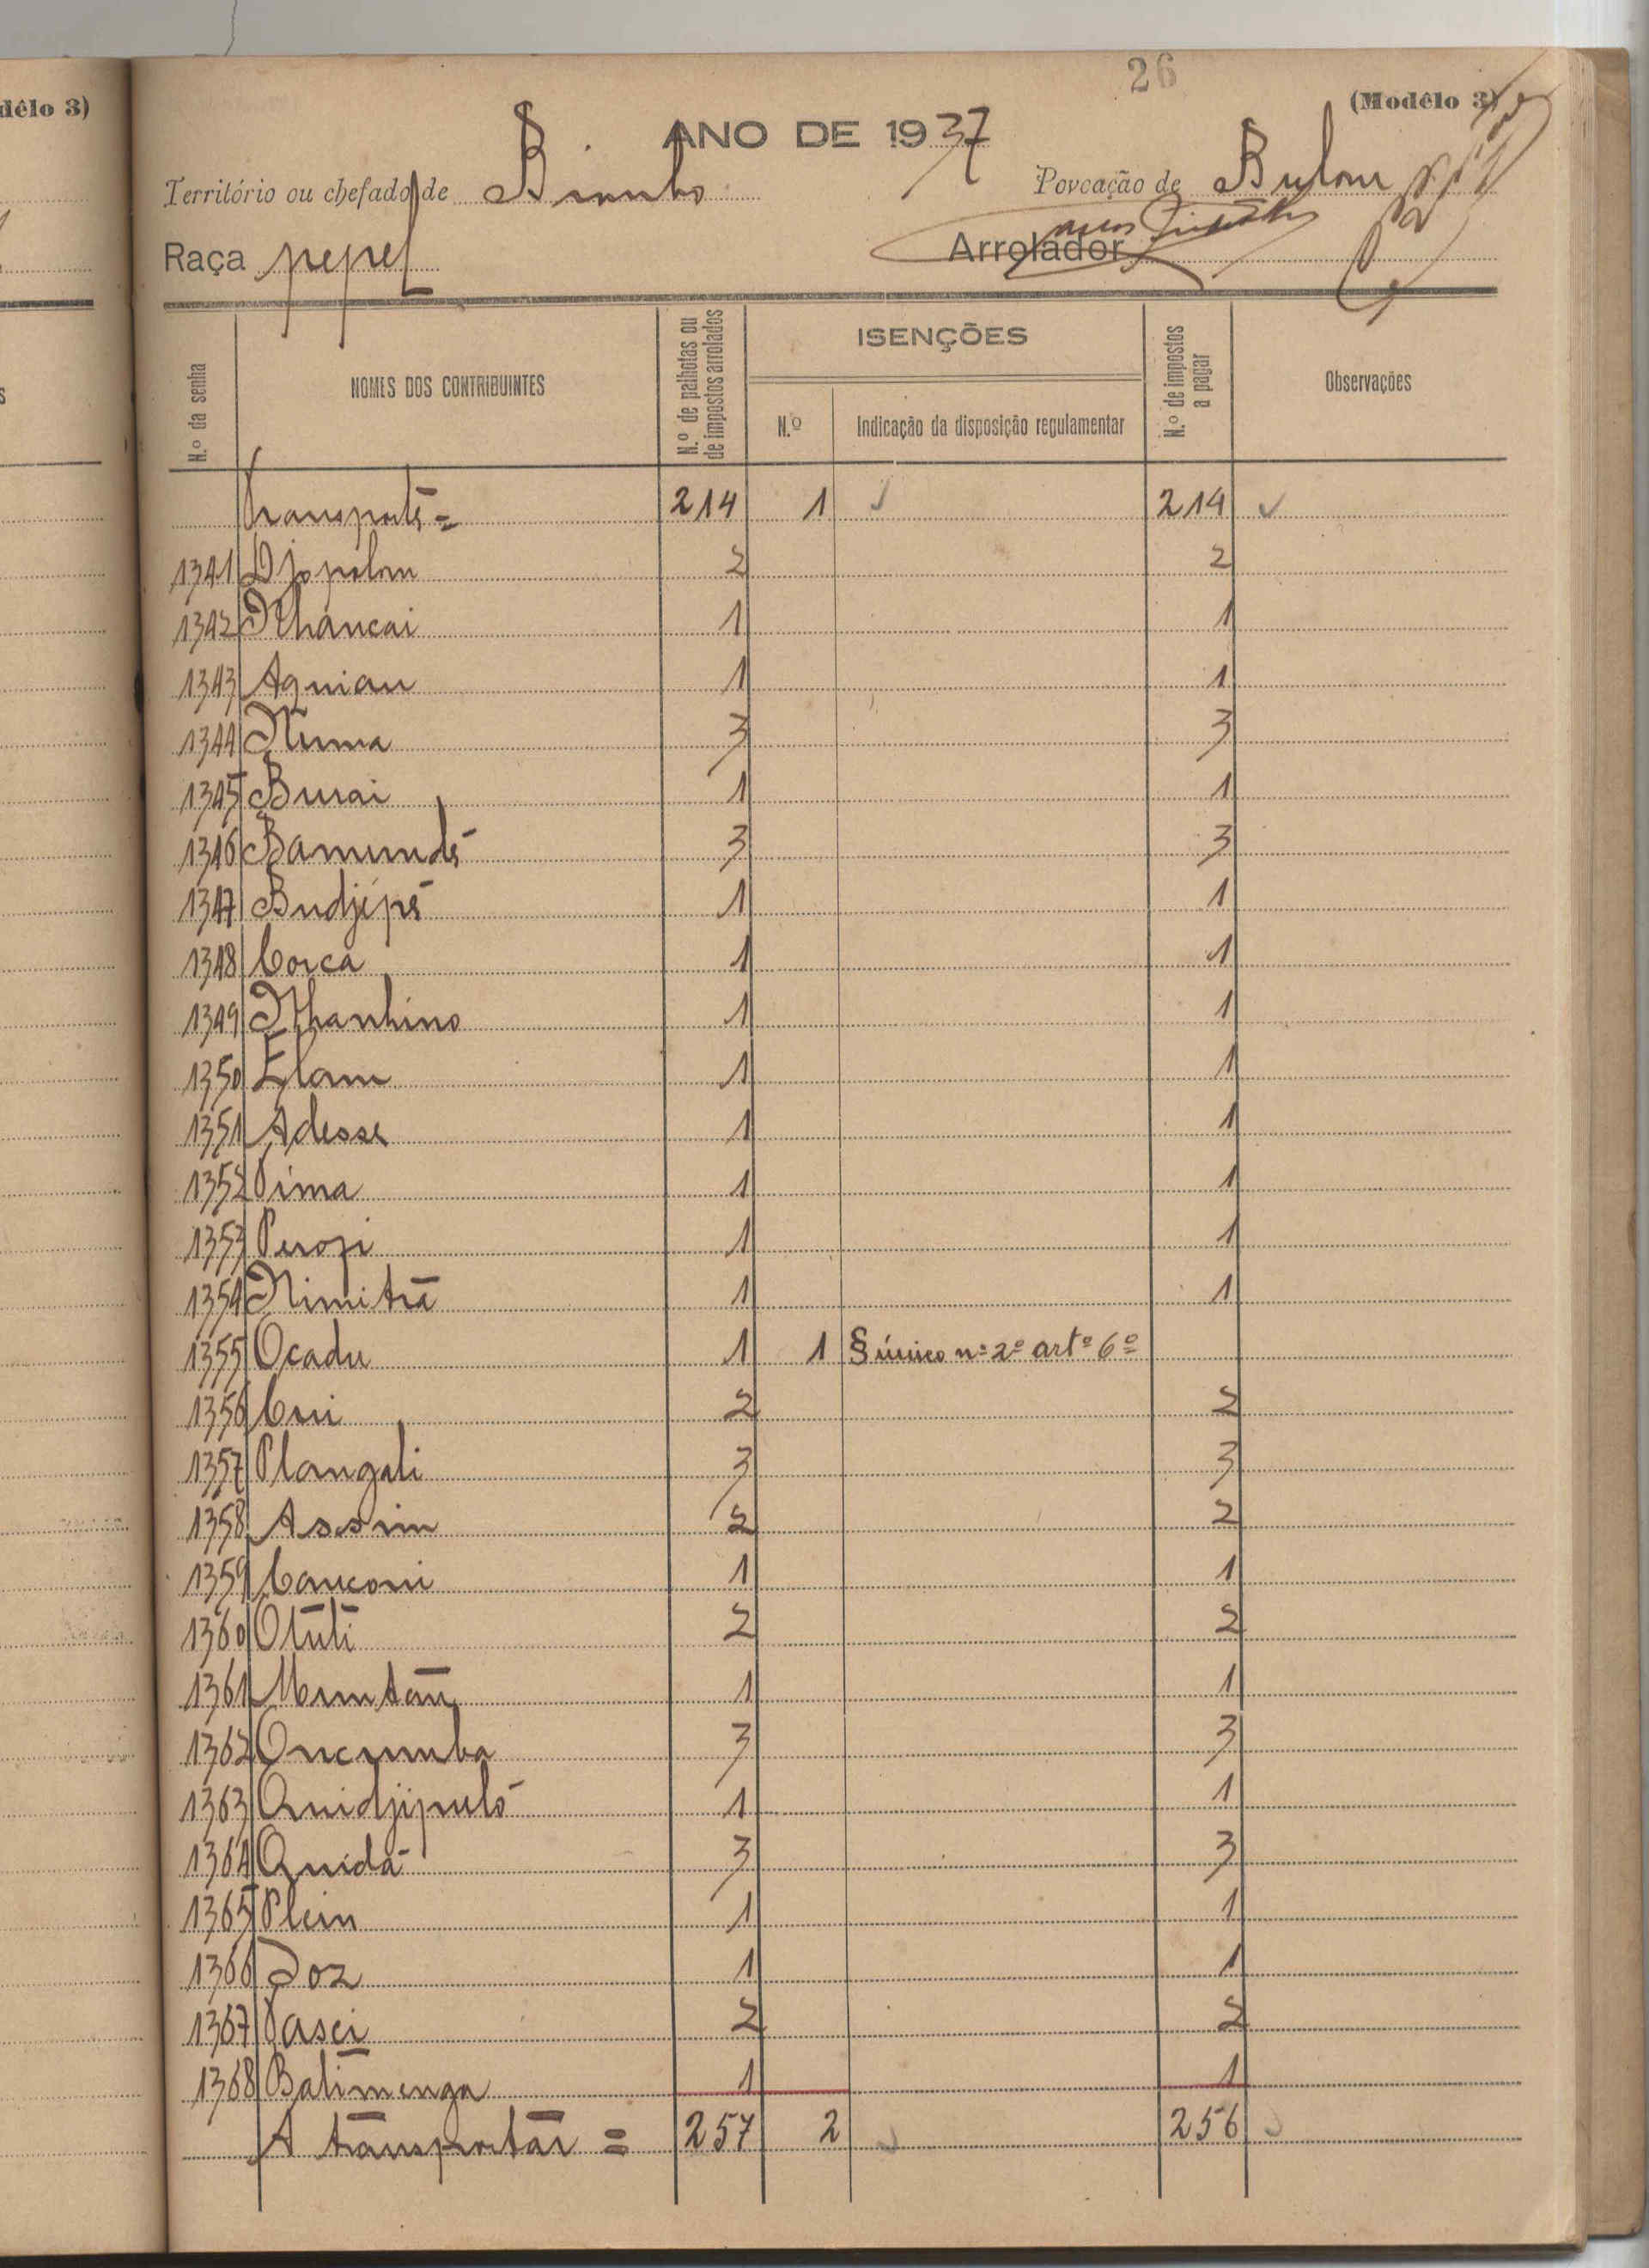 délo 3)
26
(Modêlo 3)
ANO DE 1937
Território ou chefado de Biombo
Povoação de Bulom
Raça pepel
Arrolador
N.º da senha
NOMES DOS CONTRIBUINTES
N.º de palhotas ou de impostos arrolados
ISENÇÕES
N.º
Indicação da disposição regulamentar
N.º de impostos a pagar
Observações
Transporte = 214 1 214
1341 Djopolom 2 2
1342 Nhancai 1 1
1343 Aquian 1 1
1344 Numa 3 3
1345 Burai 1 1
1346 Bamundé 3 3
1347 Budjipé 1 1
1348 Corca 1 1
1349 Nhanhino 1 1
1350 Elam 1 1
1351 Adesse 1 1
1352 Tima 1 1
1353 1 1
1354 Nimitrá 1 1
1355 Ocadu 1 1 § único nº 2º artº 6º
1356 Cui 2 2
1357 Plangali 3 3
1358 Assim 2 2
1359 Canconi 1 1
1360 Otuti 2 2
1361 1 1
1362 Oncumba 3 3
1363 Quidjipuló 1 1
1364 Quidá 3 3
1365 Plein 1 1
1366 1 1
1367 Pasci 2 2
1368 Balimenga 1 1
A transportar = 257 2 256